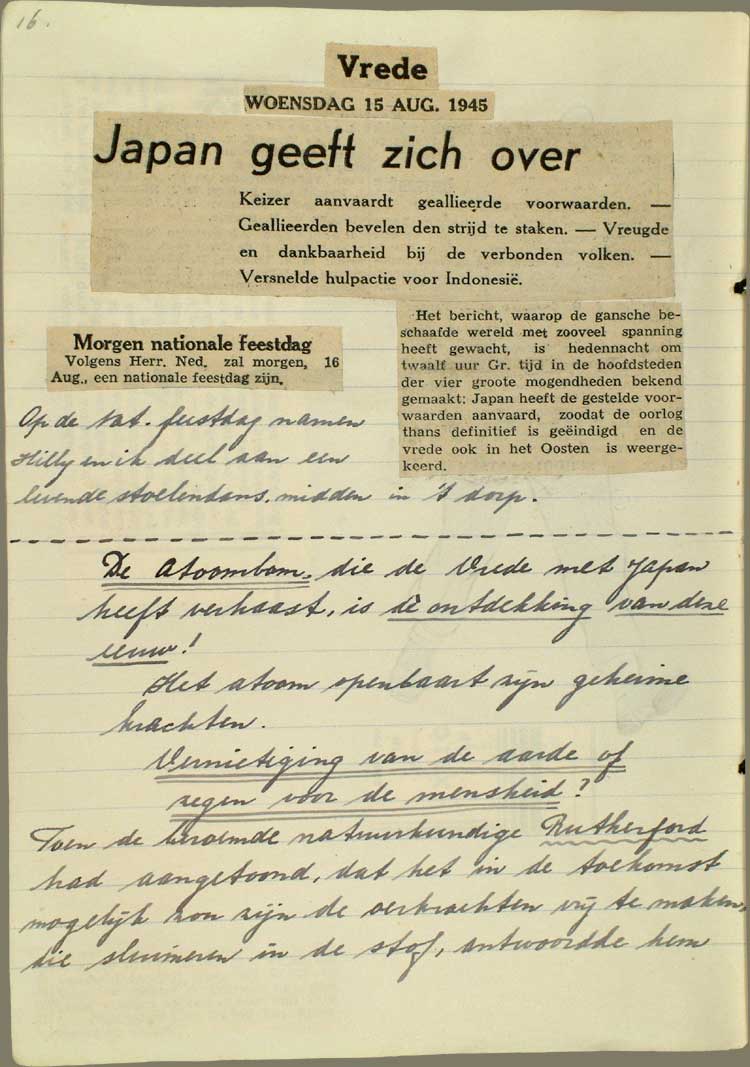 16.
Vrede
WOENSDAG 15 AUG. 1945
Japan geeft zich over
Keizer aanvaardt geallieerde voorwaarden. —
Geallieerden bevelen den strijd te staken. — Vreugde
en dankbaarheid bij de verbonden volken. —
Versnelde hulpactie voor Indonesië.
Morgen nationale feestdag
Volgens Herr. Ned. zal morgen, 16
Aug., een nationale feestdag zijn.
Het bericht, waarop de gansche be-
schaafde wereld met zooveel spanning
heeft gewacht, is hedennacht om
twaalf uur Gr. tijd in de hoofdsteden
der vier groote mogendheden bekend
gemaakt: Japan heeft de gestelde voor-
waarden aanvaard, zoodat de oorlog
thans definitief is geëindigd en de
vrede ook in het Oosten is weerge-
keerd.
Op de nat. feestdag namen
Hilly en ik deel aan een
levende stoelendans, midden in 't dorp.
De atoombom, die de Vrede met Japan
heeft verhaast, is dè ontdekking van deze
eeuw!
Het atoom openbaart zijn geheime
krachten.
Vernietiging van de aarde of
zegen voor de mensheid?
Toen de beroemde natuurkundige Rutherford
had aangetoond, dat het in de toekomst
mogelijk zou zijn de oerkrachten vrij te maken,
die sluimeren in de stof, antwoordde hem